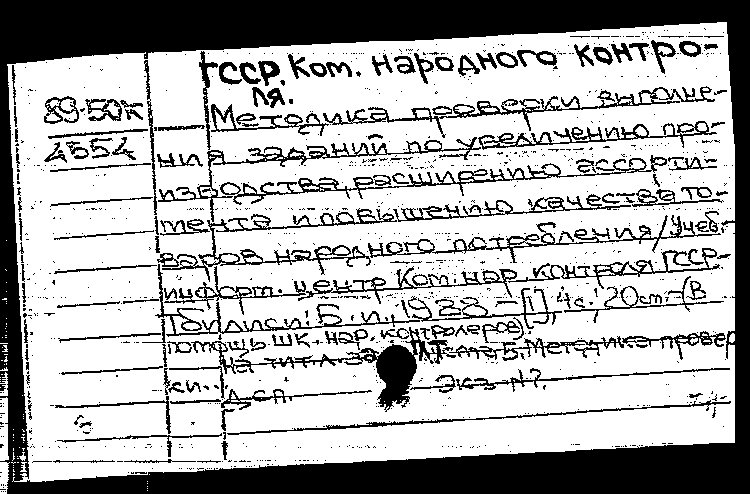 ГССР. Ком. народного контро-
ля.
89-50к
4554
Методика проверки выполне-
ния заданий по увеличению про-
изводства, расширению ассорти-
мента и повышению качества то-
варов народного потребления / Учеб.-
информ. центр Ком. нар. контроля ГССР.-
Тбилиси: Б. и., 1988. - [1], 4 с.; 20 см. - (В
помощь шк. нар. контролеров).
На тит. л. Тема 5. Методика провер
ки..
Экз. №7.
Дсп.